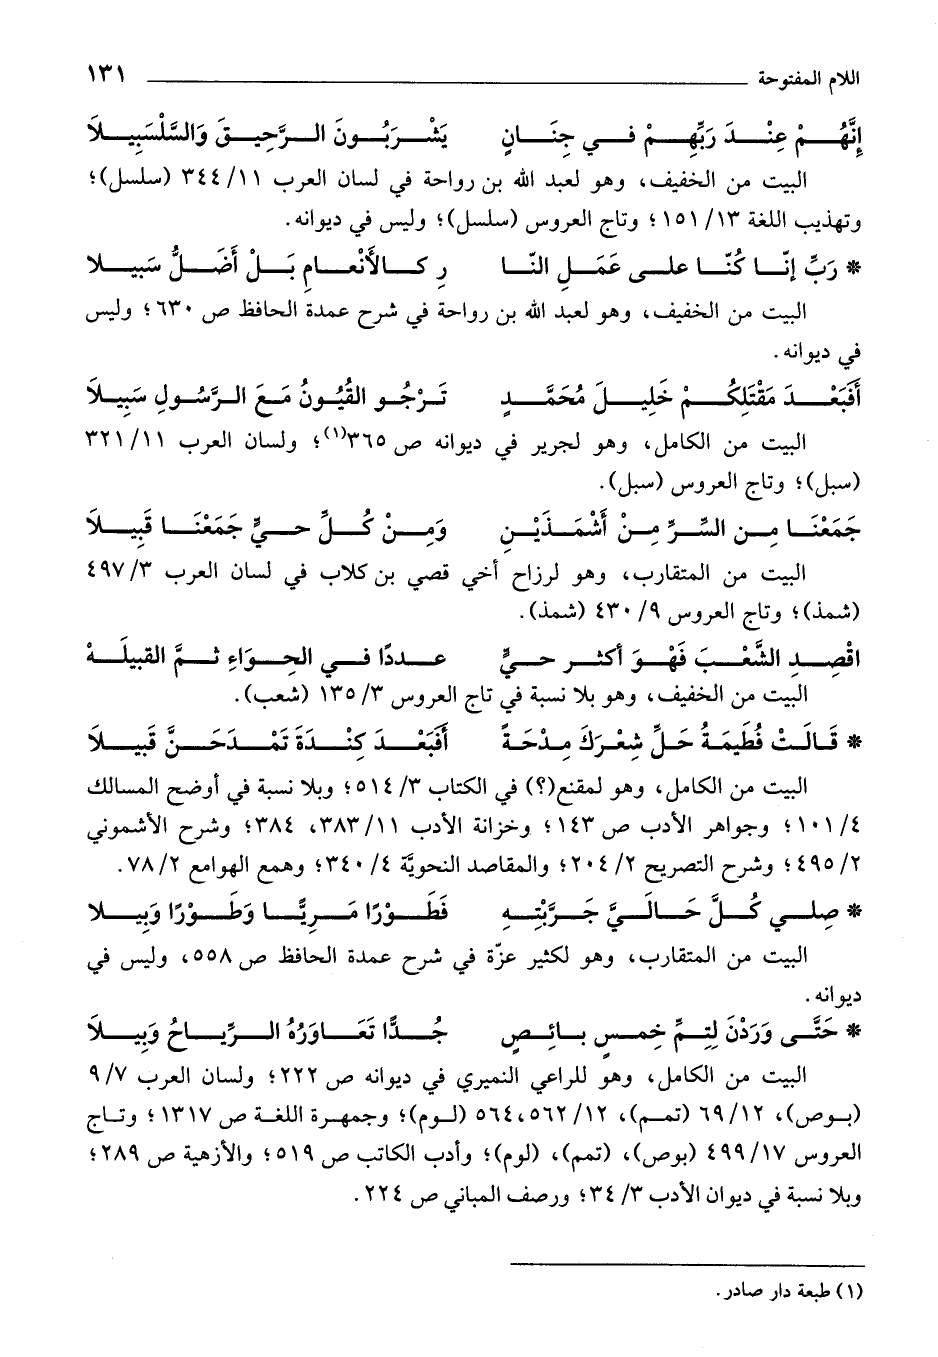 اللام المفتوحة ١٣١
إِنَّهُـمْ عِنْـدَ رَبِّهِـمْ فـي جِنَـانٍ يَشْـرَبُـونَ الـرَّحِيـقَ وَالسَّلْسَبِيـلاَ
البيت من الخفيف، وهو لعبد الله بن رواحة في لسان العرب ١١/ ٣٤٤ (سلسل)؛
وتهذيب اللغة ١٣/ ١٥١؛ وتاج العروس (سلسل)؛ وليس في ديوانه.
* رَبِّ إنّـا كُنّـا علـى عَمَـلِ النّـا رِ كـالأَنْعـامِ بَـلْ أَضَـلُّ سَبِيـلا
البيت من الخفيف، وهو لعبد الله بن رواحة في شرح عمدة الحافظ ص ٦٣٠؛ وليس
في ديوانه.
أَفَبَعْـدَ مَقْتَلِكُـمْ خَلِيـلَ مُحَمَّـدٍ تَـرْجُـو القُيُـونُ مَـعَ الـرَّسُـولِ سَبِيـلاَ
البيت من الكامل، وهو لجرير في ديوانه ص ٣٦٥(١)؛ ولسان العرب ١١/ ٣٢١
(سبل)؛ وتاج العروس (سبل).
جَمَعْنَـا مِـن السِّـرِّ مِـنْ أَشْمَـذَيْـنِ وَمِـنْ كُـلِّ حـيٍّ جَمَعْنَـا قَبِيـلاَ
البيت من المتقارب، وهو لرزاح أخي قصي بن كلاب في لسان العرب ٣/ ٤٩٧
(شمذ)؛ وتاج العروس ٩/ ٤٣٠ (شمذ).
اقْصِـدِ الشَّعْـبَ فَهْـوَ أكثـر حـيٍّ عـددًا فـي الحِـوَاءِ ثـمَّ القبيلَـهْ
البيت من الخفيف، وهو بلا نسبة في تاج العروس ٣/ ١٣٥ (شعب).
* قَـالَـتْ فُطَيمَـةُ حَـلِّ شِعْـرَكَ مِـدْحَـةً أَفَبَعْـدَ كِنْـدَةَ تَمْـدَحَـنَّ قَبِيـلاَ
البيت من الكامل، وهو لمقنع(؟) في الكتاب ٣/ ٥١٤؛ وبلا نسبة في أوضح المسالك
٤/ ١٠١؛ وجواهر الأدب ص ١٤٣؛ وخزانة الأدب ١١/ ٣٨٣، ٣٨٤؛ وشرح الأشموني
٢/ ٤٩٥؛ وشرح التصريح ٢/ ٢٠٤؛ والمقاصد النحويَّة ٤/ ٣٤٠؛ وهمع الهوامع ٢/ ٧٨.
* صِلـي كُـلَّ حَـالَـيَّ جَـرَّبْتِـهِ فَطَـوْرًا مَـرِيًّـا وَطَـوْرًا وَبِيـلا
البيت من المتقارب، وهو لكثير عزّة في شرح عمدة الحافظ ص ٥٥٨، وليس في
ديوانه.
* حَتَّـى وَرَدْنَ لِتِـمِّ خِمـسٍ بـائِـصٍ جُـدًّا تَعَـاوَرُهُ الـرِّيـاحُ وَبِيـلاَ
البيت من الكامل، وهو للراعي النميري في ديوانه ص ٢٢٢؛ ولسان العرب ٧/ ٩
(بـوص)، ١٢/ ٦٩ (تمـم)، ١٢/ ٥٦٢، ٥٦٤ (لـوم)؛ وجمهـرة اللغـة ص ١٣١٧؛ وتـاج
العروس ١٧/ ٤٩٩ (بوص)، (تمم)، (لوم)؛ وأدب الكاتب ص ٥١٩؛ والأزهية ص ٢٨٩؛
وبلا نسبة في ديوان الأدب ٣/ ٣٤؛ ورصف المباني ص ٢٢٤.
(١) طبعة دار صادر.